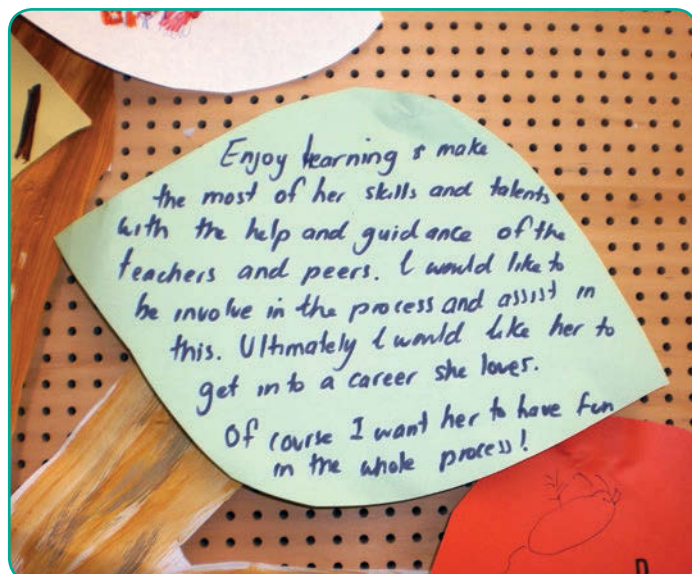 Enjoy learning & make
the most of her skills and talents
with the help and guidance of the
teachers and peers. I would like to
be involve in the process and assist in
this. Ultimately I would like her to
get into a career she loves.
Of course I want her to have fun
in the whole process!